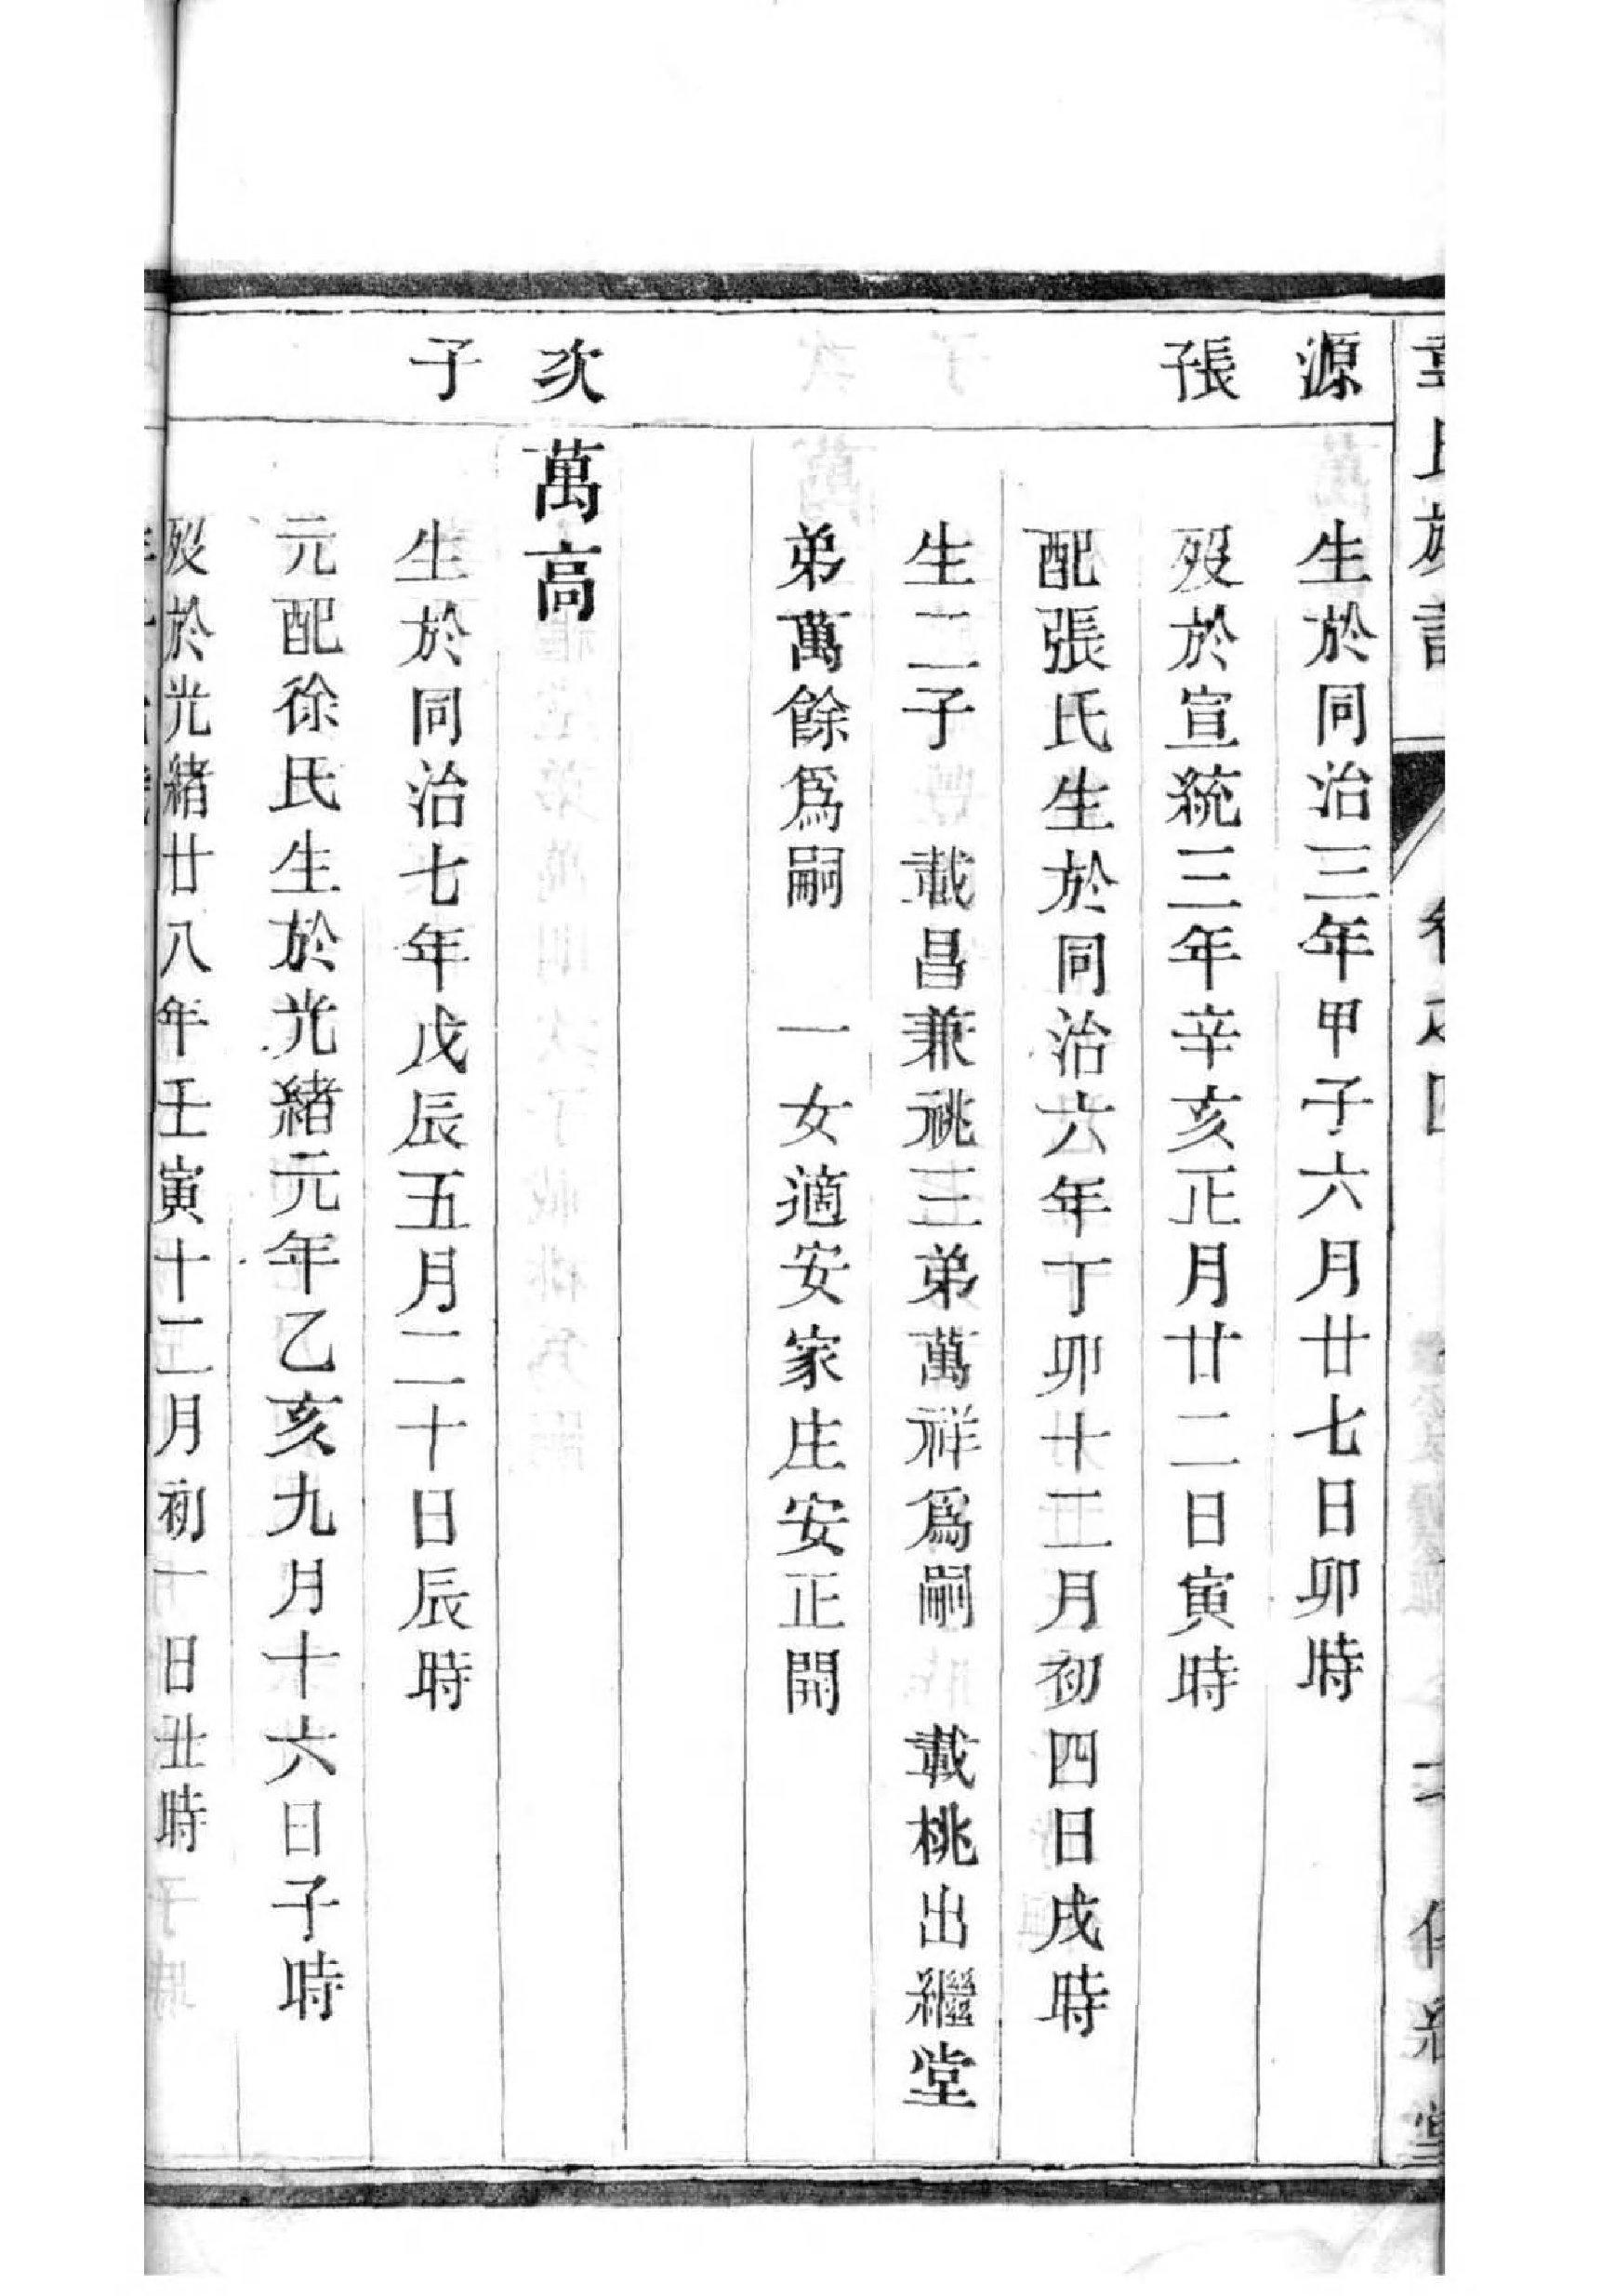 章氏族譜 卷之四
源 生於同治三年甲子六月廿七日卯時
張 歿於宣統三年辛亥正月廿二日寅時
子 配張氏生於同治六年丁卯十二月初四日戌時
生二子 載昌兼祧三弟萬祥爲嗣 載桃出繼堂
弟萬餘爲嗣 一女適安家庄安正開
次 萬高
子 生於同治七年戊辰五月二十日辰時
元配徐氏生於光緒元年乙亥九月十六日子時
歿於光緒廿八年壬寅十二月初一日丑時